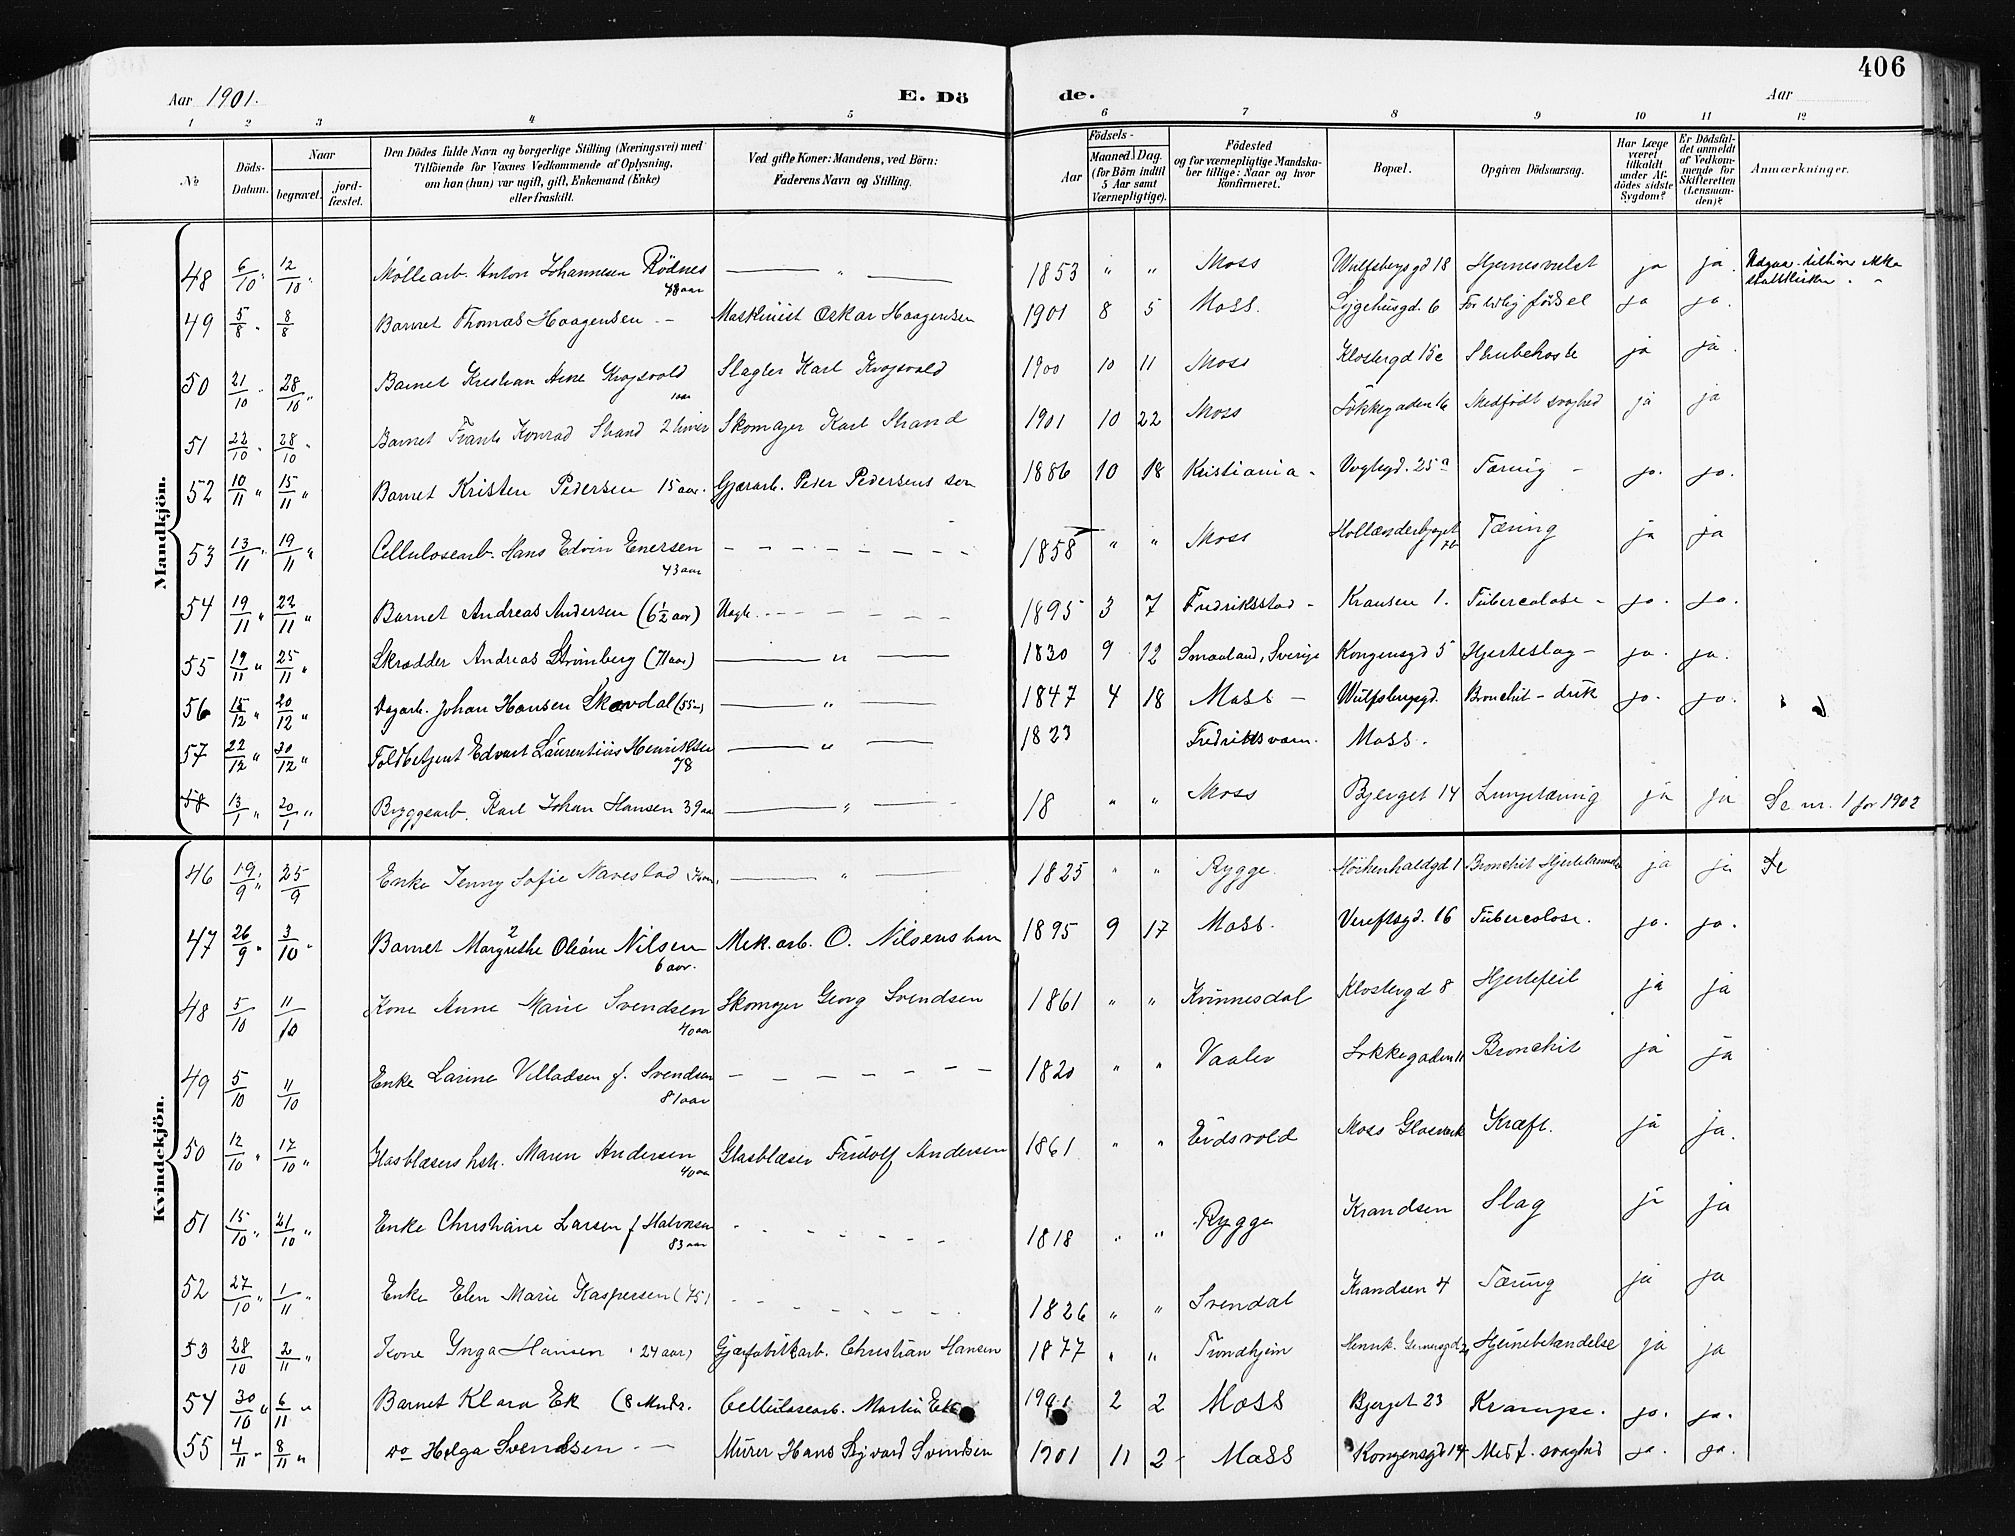 406
Aar 1901. E. Dö de. Aar
1 2 3 4 5 6 7 8 9 10 11 12
No Döds-Datum. Naar begravet. jord-fæstet. Den Dödes fulde Navn og borgerlige Stilling (Næringsvei) med Tilföiende for Voxnes Vedkommende af Oplysning, om han (hun) var ugift, gift, Enkemand (Enke) eller fraskilt. Ved gifte Koner: Mandens, ved Börn: Faderens Navn og Stilling. Födsels- Aar Maaned. Dag. (for Börn indtil 5 Aar samt Værnepligtige). Födested og for værnepligtige Mandska-ber tillige: Naar og hvor konfirmeret. Bopæl. Opgiven Dödsaarsag. Har Læge været tilkaldt under Af-dödes sidste Sygdom? Er Dödsfal-det anmeldt af Vedkom-mende for Skifteretten (Lensman-den)? Anmærkninger.
Mandkjön.
48 6/10 " 12/10 " Møllearb. Anton Johannesen Rödnes 48 aar — " — 1853 " " Moss Wulfsbergsgd 18 Hjernesvulst ja ja.
49 5/8 " 8/8 Barnet Thomas Haagensen - Maskinist Oskar Haagensen 1901 8 5 Moss. Sygehusgd. 6 For tidlig fødsel ja ja.
50 21/10 " 28/10 " Barnet Kristian Arne Krogsvold 1 aar Slagter Karl Krogsvold 1900 10 11 Moss Klostergd 15c Strubehoste ja ja.
51 22/10 " 28/10 " Barnet Frants Konrad Strand 2 timer Skomager Karl Strand 1901 10 22 Moss Løkkegaden 16 Medfødt svaghed ja ja
52 10/11 " 15/11 " Barnet Kristen Pedersen 15 aar. Gjærarb. Peder Pedersens søn 1886 10 18 Kristiania - Voglsgd. 25a Tæring - ja. ja.
53 13/11 " 19/11 " Cellulosearb. Hans Edvin Enersen 43 aar - - - 1858 " " Moss Tæring ja ja
54 19/11 " 22/11 " Barnet Andreas Andersen (6½ aar) Uægte. - - - 1895 3 7 Fredriksstad - Kransen 1. Tuberculose - ja. ja.
55 19/11 " 25/11 " Skrædder Andreas Strømberg (71 aar) — " — 1830 9 12 Smaaland, Sverige Kongensgd 5 Hjerteslag - ja. ja.
56 15/12 " 20/12 " Dagarb. Johan Hansen Skavdal (55-) — " — 1847 4 18 Moss - Wulfsbergsgd. Bronchit - drik ja. ja.
57 22/12 " 30/12 " Toldbetjent Edvart Laurentius Henriksen 78 — " — 1823 Fredriksværn. Moss.
58 13/1 " 20/1 " Bryggearb. Karl Johan Hansen 39 aar — " — 18 " " Moss Bjerget 14 Lungetæring ja ja Se nr. 1 for 1902
Kvindekjön.
46 19/9 " 25/9 Enke Jenny Sofie Navestad — " — 1825 " " Rygge. Bronchit ja ja
47 26/9 " 3/10 " Barnet Margrethe Oleane Nilsen 6 aar. Mek. arb. O. Nilsens barn 1895 9 17 Moss. Verftsgd. 16 Tuberculose. ja. ja.
48 5/10 11/10 Kone Anne Marie Svendsen 40 aar Skomager Georg Svendsen 1861 " " Kvinnesdal Klostergd 8 Hjertefeil ja ja
49 5/10 11/10 Enke Larine Villadsen f. Svendsen 81 aar - - - 1820 " " Vaaler Løkkegaden 11 Bronchit ja ja
50 12/10 " 17/10 " Glasblæsers hstr. Maren Andersen 40 aar Glasblæser Fridolf Andersen 1861 " " Eidsvold Moss Glasværk Kræft. ja ja.
51 15/10 " 21/10 " Enke Christiane Larsen f Halvorsen 83 aar - - - 1818 " " Rygge Krandsen Slag ja ja
52 27/10 " 1/11 " Enke Elen Marie Kaspersen (75) - - - 1826 " " Svendal Krandsen 4 Tæring ja ja
53 28/10 2/11 " Kone Inga Hansen (24 aar) Gjærfabrikarb. Christian Hansen 1877 " " Trondhjem Hjernebetændelse ja ja
54 30/10 " 6/11 " Barnet Klara Ek (8 Mndr. Cellulosearb. Martin Ek 1901 2 2 Moss Bjerget 23 Krampe. ja. ja.
55 4/11 " 8/11 " do Helga Svendsen - Murer Hans Sigvard Svendsen 1901 11 2 - Moss Kongensgd 14 Medf. svaghed ja. ja.